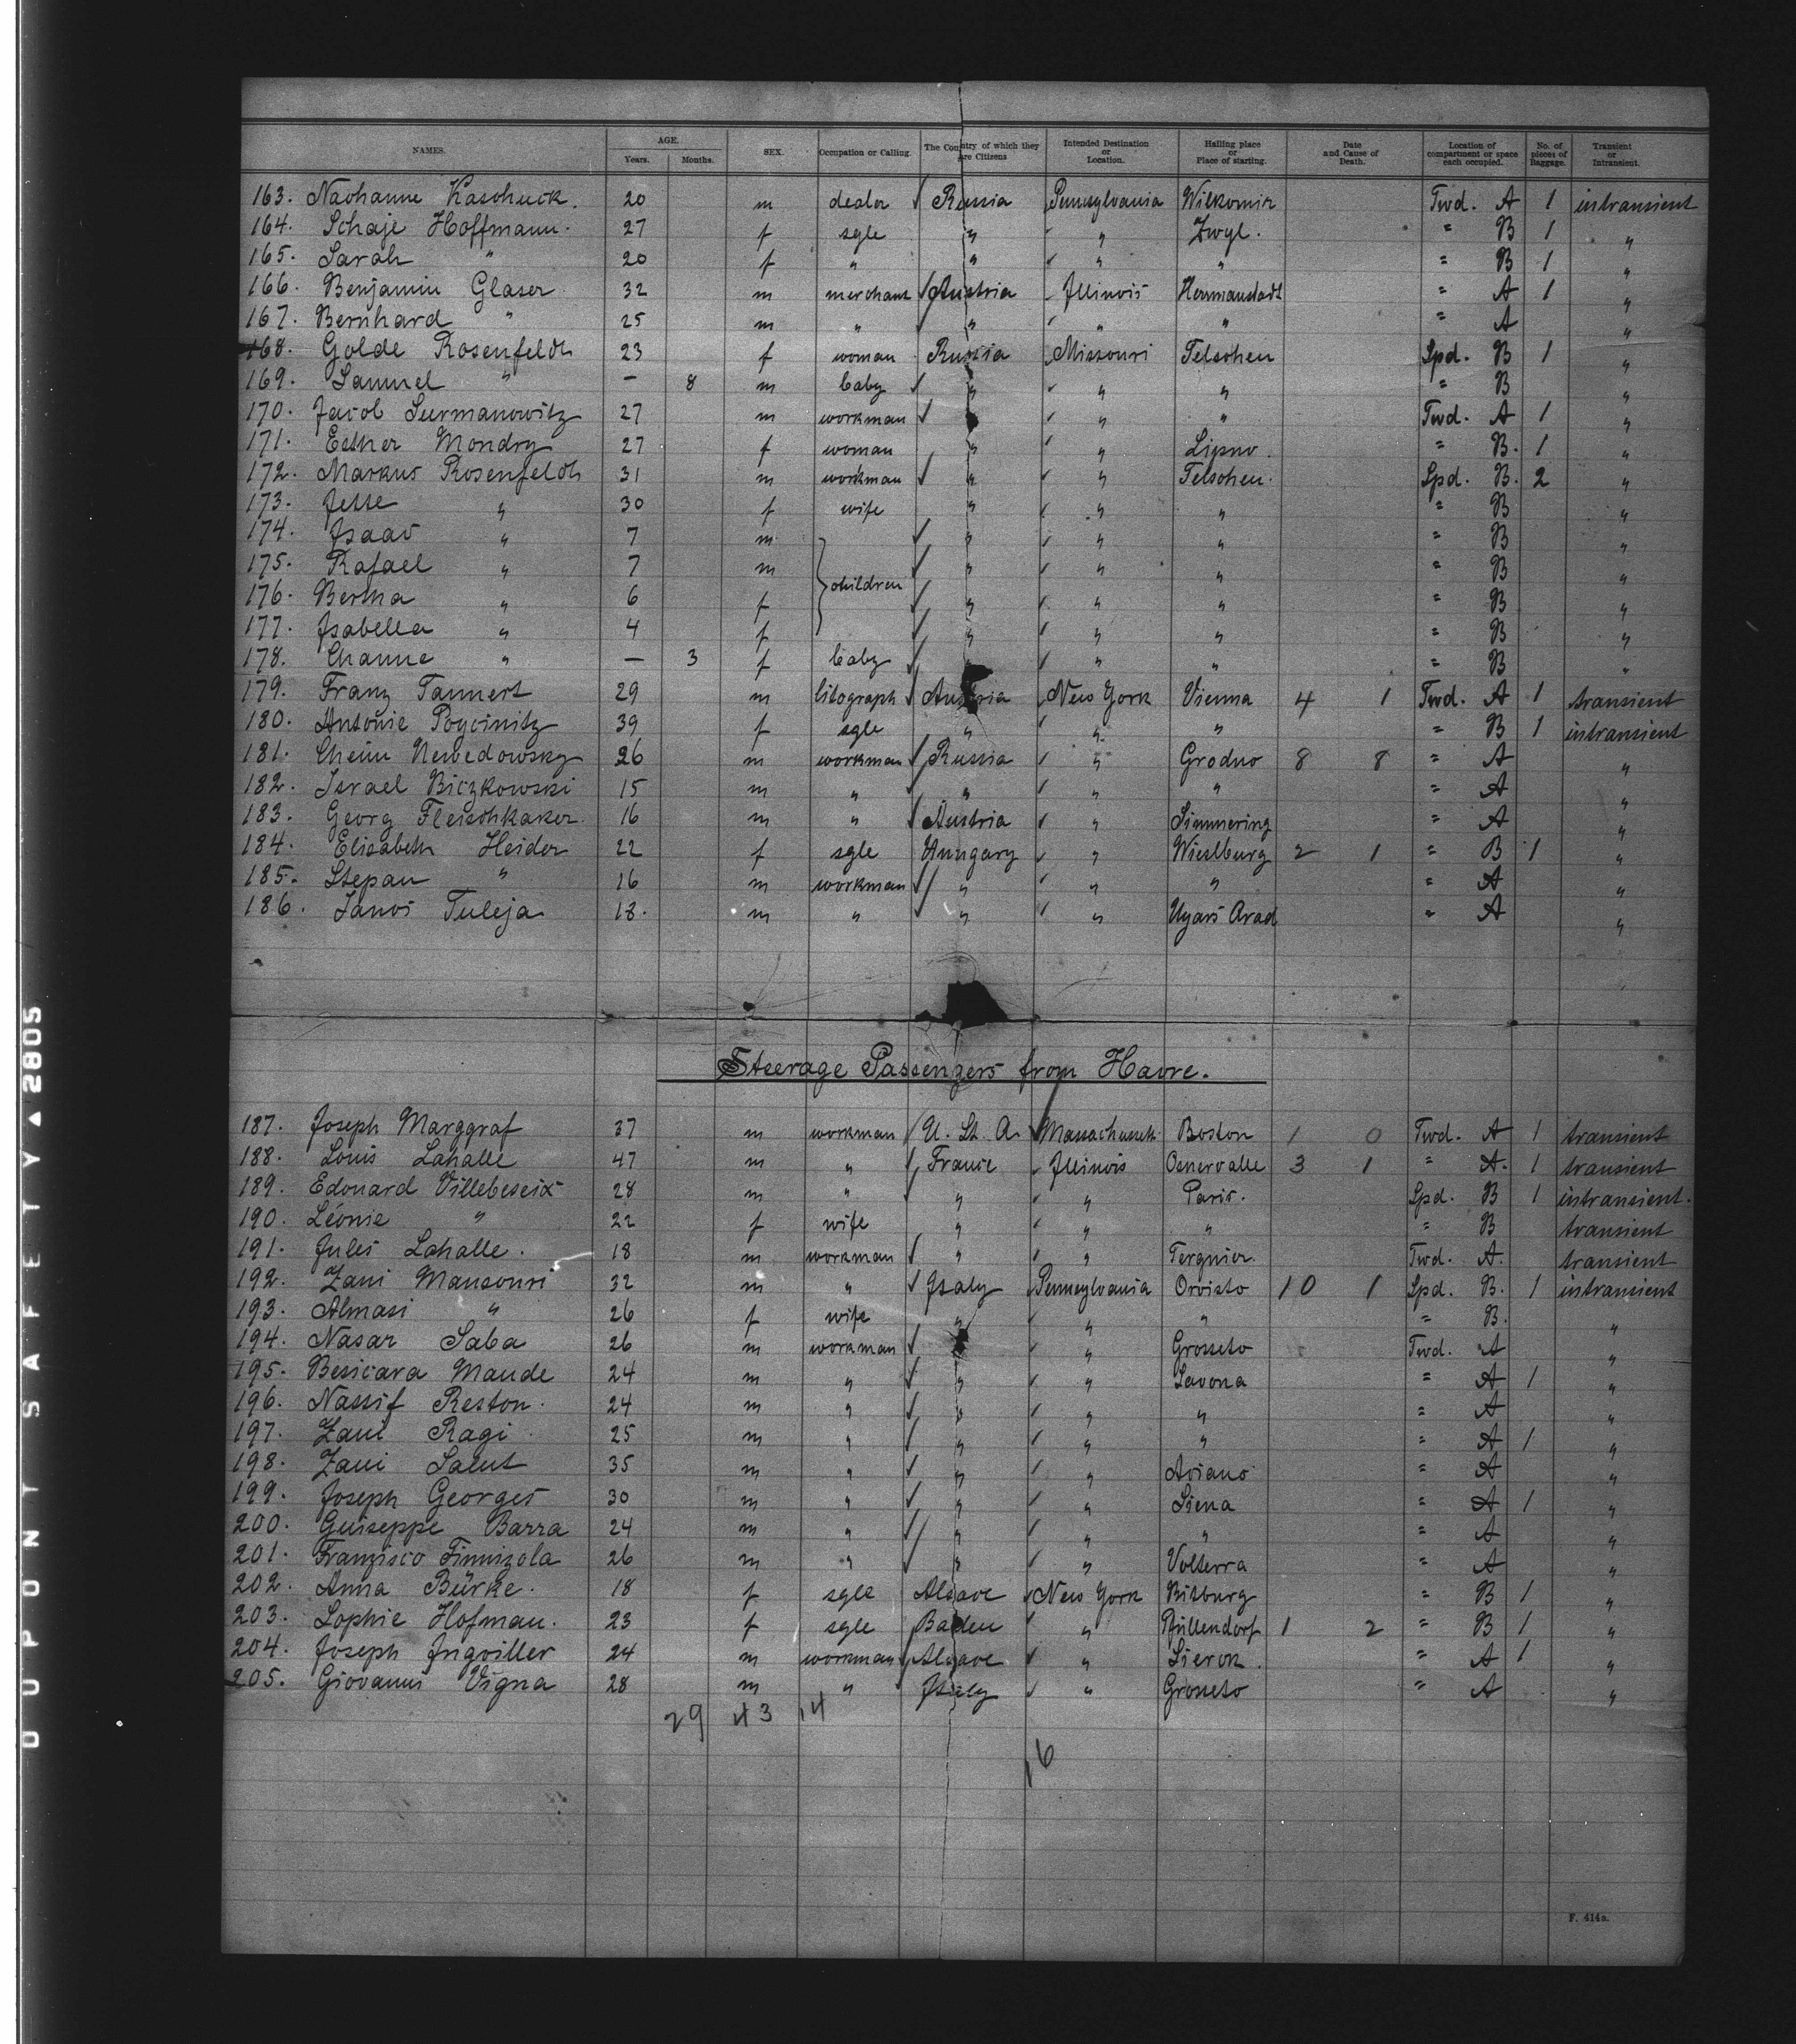 NAMES. AGE. Years. Months. SEX. Occupation or Calling. The Country of which they are Citizens Intended Destination or Location. Hailing place or Place of starting. Date and Cause of Death. Location of compartment or space each occupied. No. of pieces of Baggage. Transient or Intransient.
163. Nachanne Kaschuck. 20 m dealer Russia Pennsylvania Wilkomir Twd. A 1 intransient
164. Schaje Hoffmann. 27 f sgle " " Zwyl. " B 1 "
165. Sarah " 20 f " " " " " B 1 "
166. Benjamin Glaser 32 m merchant Austria Illinois Hermanstadt " A 1 "
167. Bernhard " 25 m " " " " " A "
168. Golde Rosenfeldt 23 f woman Russia Missouri Telschen Spd. B 1 "
169. Samuel " – 8 m baby " " " " B "
170. Jacob Surmanowitz 27 m workman " " Twd. A 1 "
171. Esther Mondry 27 f woman " " Lipno. " B. 1 "
172. Markus Rosenfeldt 31 m workman " " Telschen. Spd. B. 2 "
173. Jesse " 30 f wife " " " " B "
174. Isaac " 7 m children " " " " B "
175. Rafael " 7 m " " " " B "
176. Bertha " 6 f " " " " B "
177. Isabella " 4 f " " " " B "
178. Channe " – 3 f baby " " " B "
179. Franz Tannert 29 m litograph Austria New York Vienna 4 1 Twd. A 1 transient
180. Antonie 39 f sgle " " " " B 1 intransient
181. Cheim Newedowsky 26 m workman Russia " Grodno 8 8 " A "
182. Israel Biczkowski 15 m " " " " " A "
183. Georg Fleischhaker. 16 m " Austria " Simmering " A "
184. Elisabeth Heider 22 f sgle Hungary " Wieslburg 2 1 " B 1 "
185. Stepan " 16 m workman " " " " A "
186. Janos Tuleja 18. m " " " Ugars Arad " A "
Steerage Passengers from Havre.
187. Joseph Marggraf 37 m workman U. St. A. Massachusch Boston 1 0 Twd. A 1 transient
188. Louis Lahalle 47 m " France Illinois 3 1 " A. 1 transient
189. Edouard Villebeseix 28 m " " " Paris. Spd. B 1 intransient.
190. Léonie " 22 f wife " " " " B transient
191. Jules Lahalle. 18 m workman " " Tergnier. Twd. A. transient
192. Zani Mansouri 32 m " Italy Pennsylvania Orvieto 10 1 Spd. B. 1 intransient
193. Almasi " 26 f wife " " " " B. "
194. Nasar Saba 26 m workman " Grosseto Twd. A "
195. Besicara Maude 24 m " " " Savona " A 1 "
196. Nassif Reston. 24 m " " " " " A "
197. Zaui Ragi 25 m " " " " " A 1 "
198. Zaui Salut 35 m " " " Aviano " A "
199. Joseph Georges 30 m " " " Siena " A 1 "
200. Guiseppe Barra 24 m " " " " A "
201. Franzisco Finnizola 26 m " " Volterra " A "
202. Anna Bürke. 18 f sgle Alsace New York Bitburg " B 1 "
203. Sophie Hofman. 23 f sgle Baden " Pfullendorf 1 2 " B 1 "
204. Joseph Ingviller 24 m workman Alsace " Sierck. " A 1 "
205. Giovanni Vigna 28 m " Italy " Grosseto " A "
29 43 14
16
F. 414a.
DUPONT SAFETY ▲ 2805